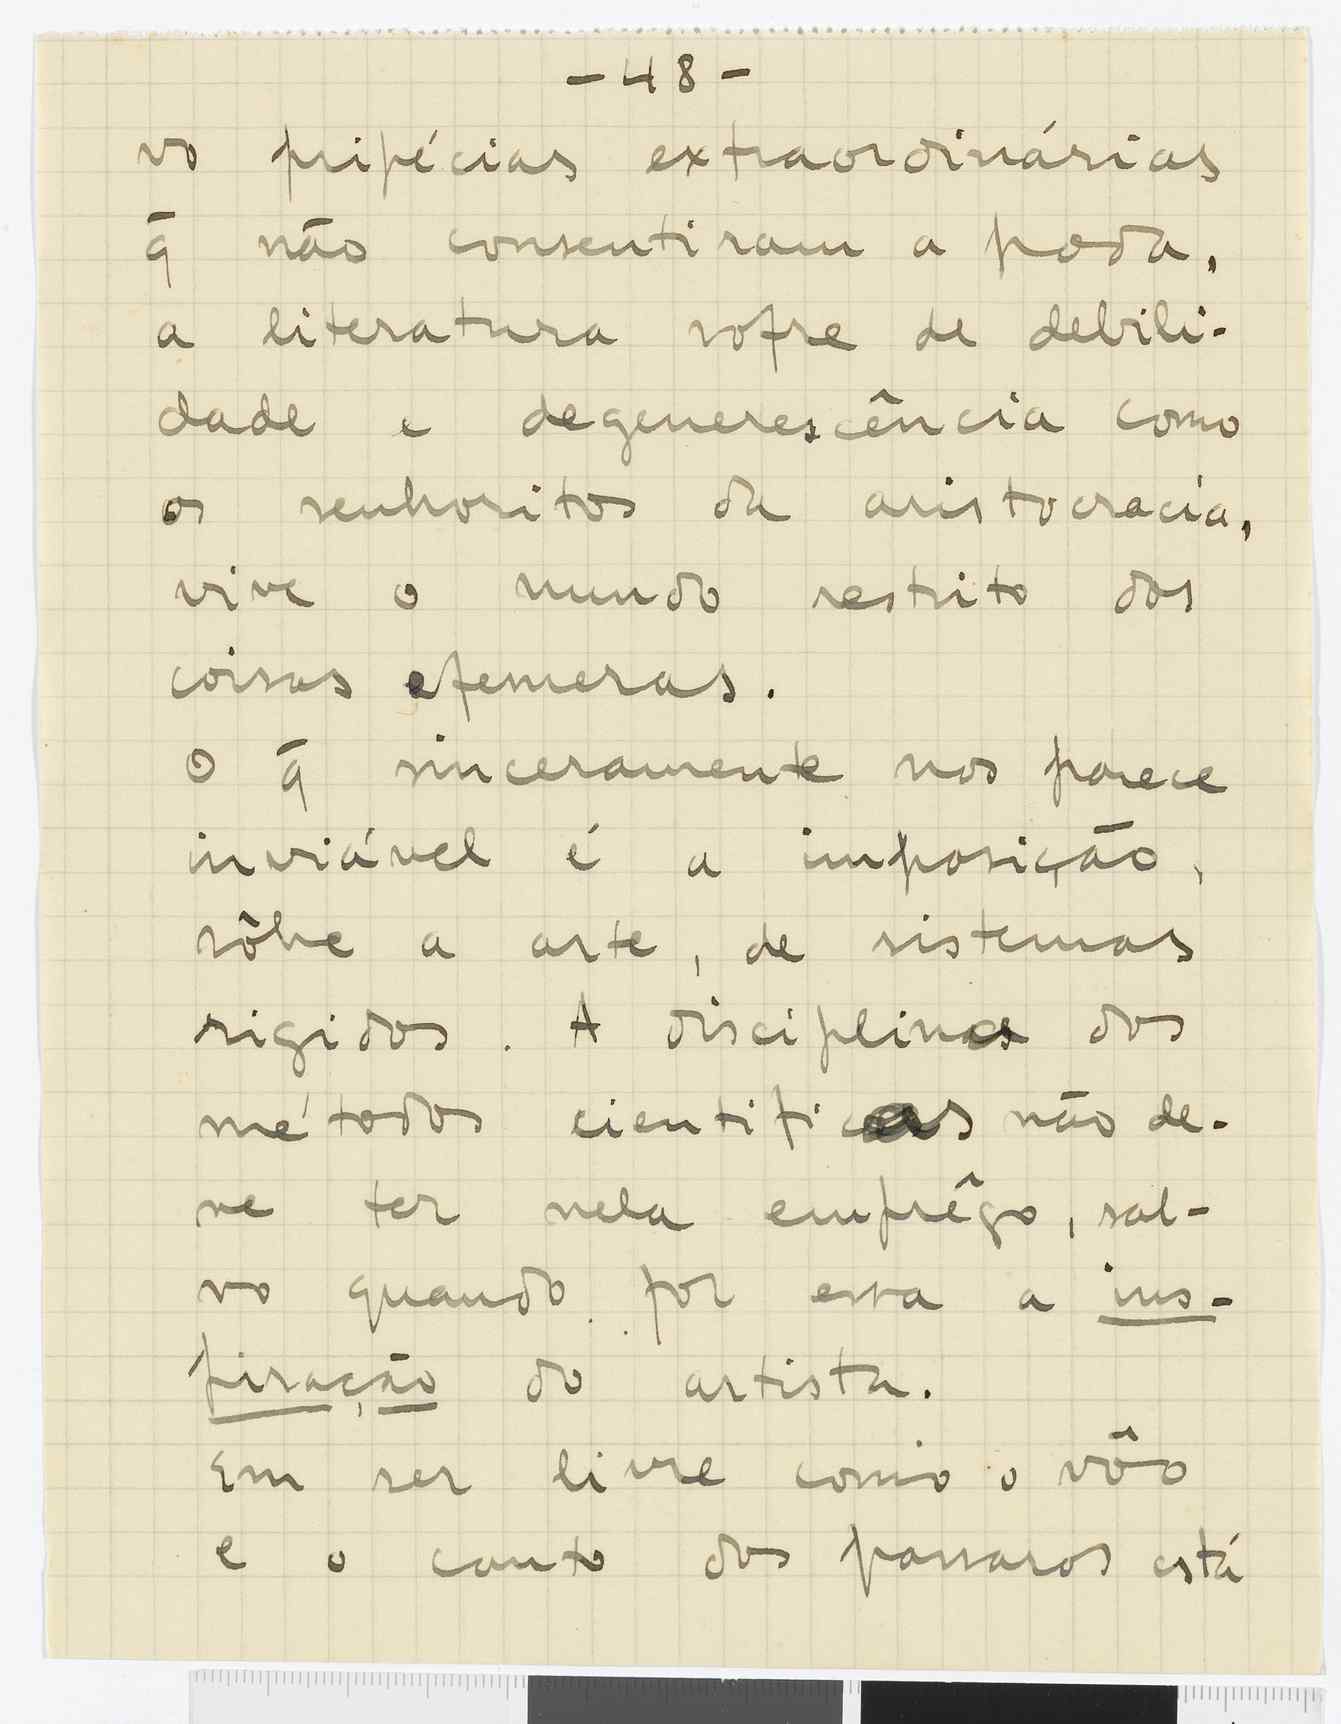 - 48 -
vo pripécias extraordinárias
q̄ não consentiram a poda,
a literatura sofre de debili-
dade e degenerescência como
os senhoritos da aristocracia,
vive o mundo restrito das
coisas efemeras.
O q̄ sinceramente nos parece
inviável é a imposição,
sôbre a arte, de sistemas
rigidos. A disciplina dos
métodos cientificos não de-
ve ter nela emprêgo, sal-
vo quando por essa a ins-
piração do artista.
Em ser livre como o vôo
e o canto dos passaros está